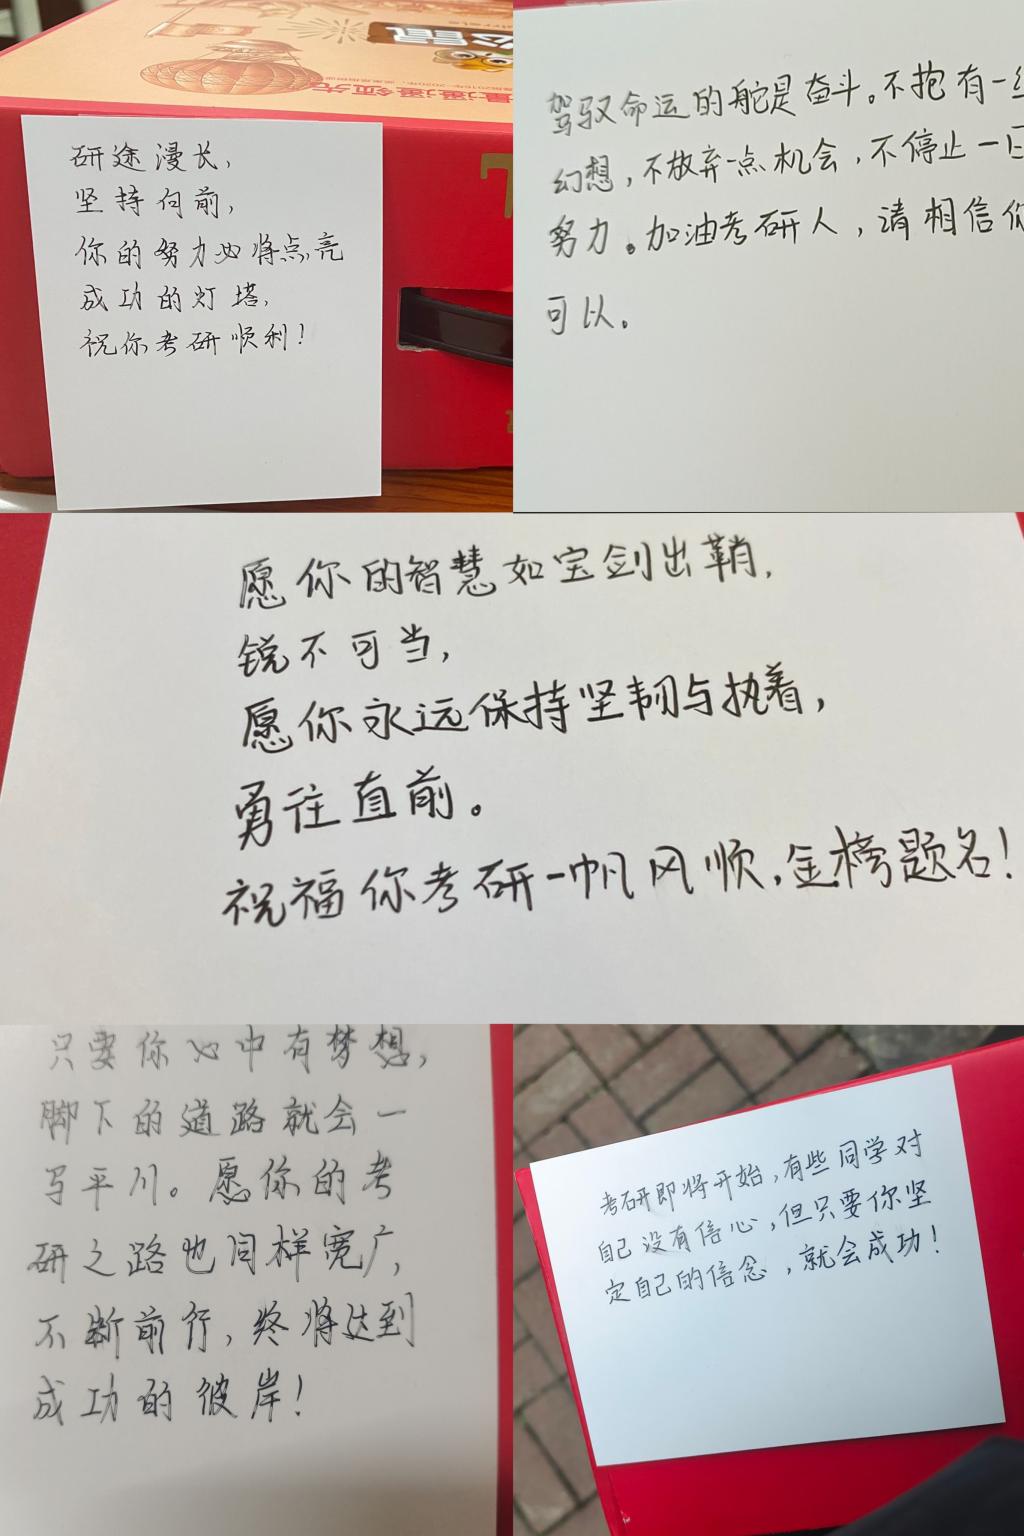 公鼠
遥遥领先
研途漫长，
坚持向前，
你的努力必将点亮
成功的灯塔，
祝你考研顺利！
驾驭命运的舵是奋斗。不抱有一
幻想，不放弃一点机会，不停止一日
努力。加油考研人，请相信你
可以。
愿你的智慧如宝剑出鞘，
锐不可当，
愿你永远保持坚韧与执着，
勇往直前。
祝福你考研一帆风顺，金榜题名！
只要你心中有梦想，
脚下的道路就会一
写平川。愿你的考
研之路也同样宽广，
不断前行，终将达到
成功的彼岸！
考研即将开始，有些同学对
自己没有信心，但只要你坚
定自己的信念，就会成功！